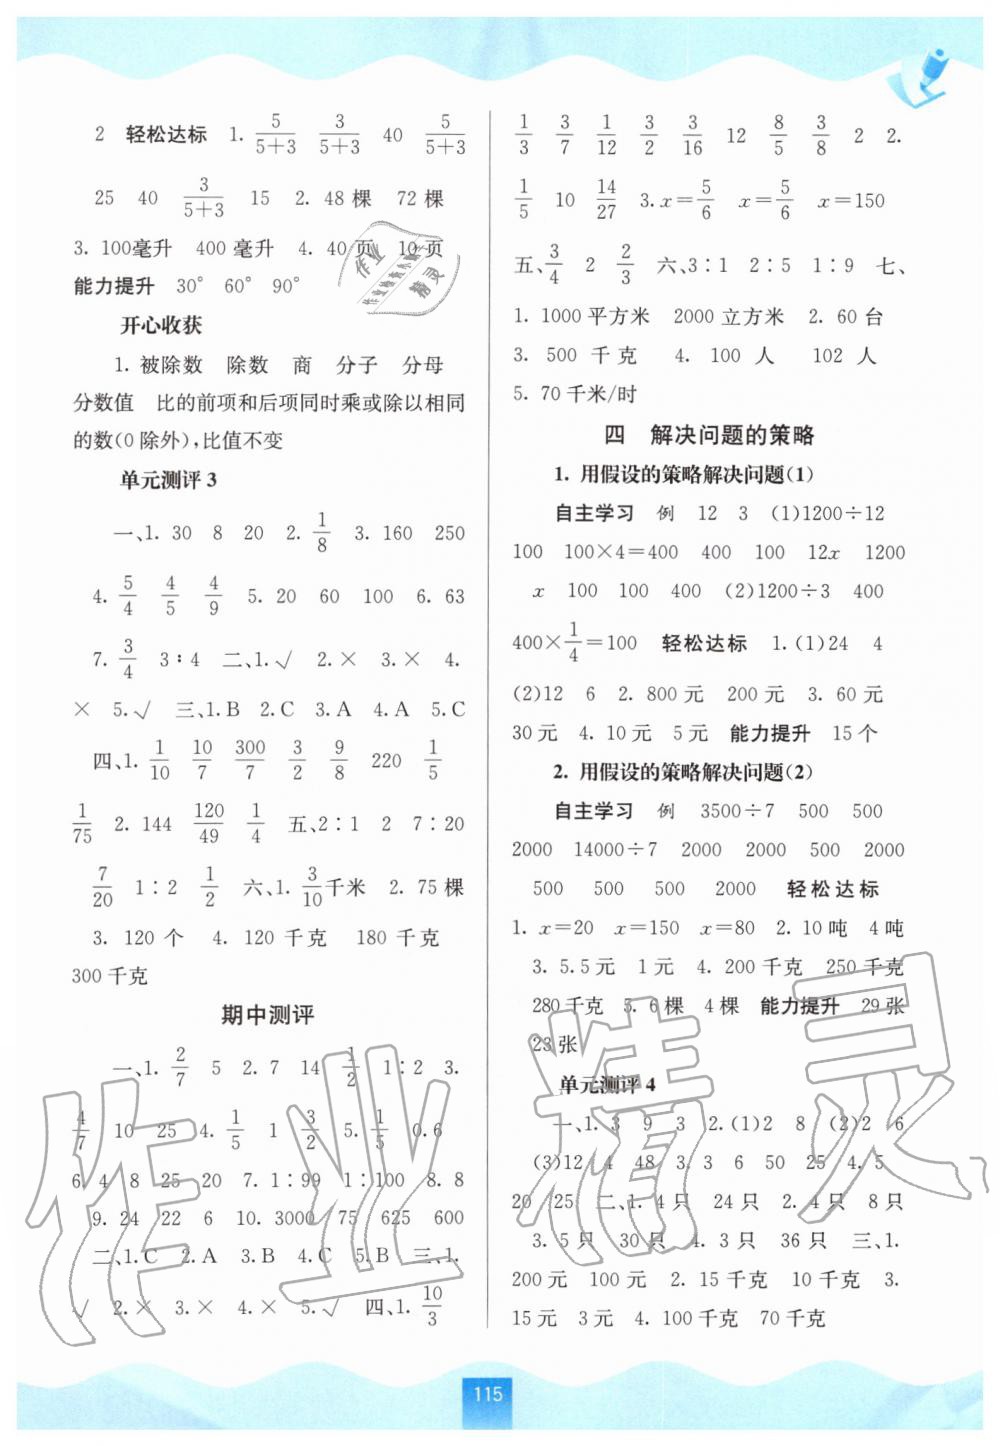 2 轻松达标 1. 5/(5+3) 3/(5+3) 40 5/(5+3)
25 40 3/(5+3) 15 2. 48棵 72棵
3. 100毫升 400毫升 4. 40页 10页
能力提升 30° 60° 90°
开心收获
1. 被除数 除数 商 分子 分母
分数值 比的前项和后项同时乘或除以相同
的数(0除外),比值不变
单元测评3
一、1. 30 8 20 2. 1/8 3. 160 250
4. 5/4 4/5 4/9 5. 20 60 100 6. 63
7. 3/4 3∶4 二、1.√ 2.× 3.× 4.
× 5.√ 三、1.B 2.C 3.A 4.A 5.C
四、1. 1/10 10/7 300/7 3/2 9/8 220 1/5
1/75 2. 144 120/49 1/4 五、2∶1 2 7∶20
7/20 1∶2 1/2 六、1. 3/10千米 2. 75棵
3. 120个 4. 120千克 180千克
300千克
期中测评
一、1. 2/7 5 2. 7 14 1/2 1∶2 3.
4/7 10 25 4. 1/5 1 3/2 5. 1/5 0.6
6. 4 8 25 20 7. 1∶99 1∶100 8. 8
9. 24 22 6 10. 3000 75 625 600
二、1.C 2.A 3.B 4.C 5.B 三、1.
√ 2.× 3.× 4.× 5.√ 四、1. 10/3
1/3 3/7 1/12 3/2 3/16 12 8/5 3/8 2 2.
1/5 10 14/27 3. x=5/6 x=5/6 x=150
五、3/4 2 2/3 六、3∶1 2∶5 1∶9 七、
1. 1000平方米 2000立方米 2. 60台
3. 500千克 4. 100人 102人
5. 70千米/时
四 解决问题的策略
1. 用假设的策略解决问题(1)
自主学习 例 12 3 (1)1200÷12
100 100×4=400 400 100 12x 1200
x 100 100 400 (2)1200÷3 400
400×1/4=100 轻松达标 1.(1)24 4
(2)12 6 2. 800元 200元 3. 60元
30元 4. 10元 5元 能力提升 15个
2. 用假设的策略解决问题(2)
自主学习 例 3500÷7 500 500
2000 14000÷7 2000 2000 500 2000
500 500 500 2000 轻松达标
1. x=20 x=150 x=80 2. 10吨 4吨
3. 5.5元 1元 4. 200千克 250千克
280千克 5. 6棵 4棵 能力提升 29张
23张
单元测评4
一、1. 3 9 3 2.(1)2 8 (2)2 6
(3)12 4 48 3. 3 6 50 25 4. 5
20 25 二、1. 4只 24只 2. 4只 8只
3. 5只 30只 4. 3只 36只 三、1.
200元 100元 2. 15千克 10千克 3.
15元 3元 4. 100千克 70千克
115
作业精灵